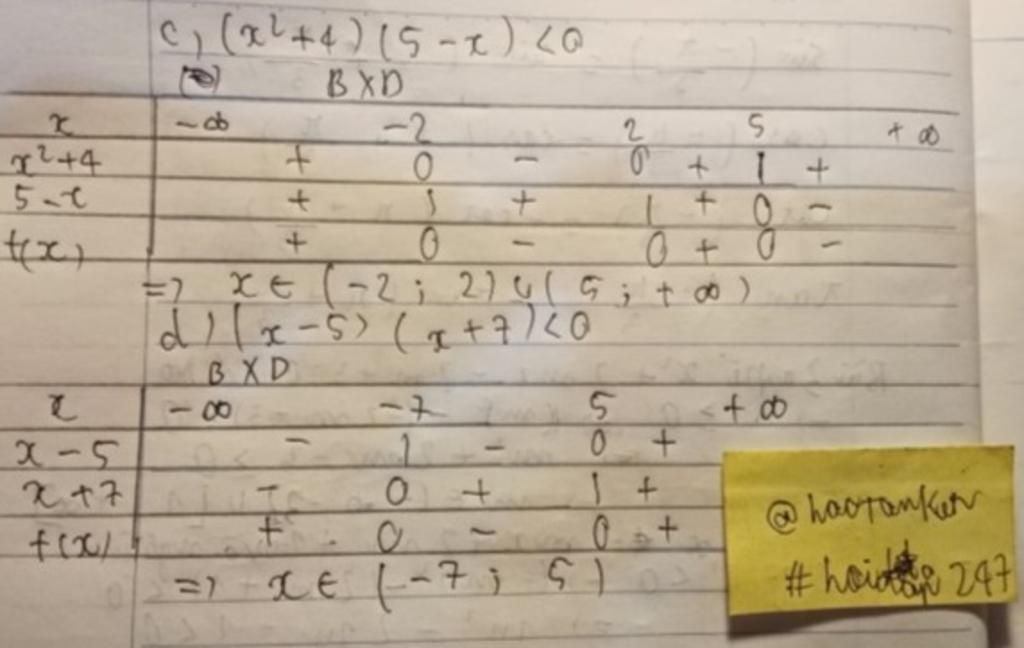 c, (x²+4)(5-x)<0
BXD
x -∞ -2 2 5 +∞
x²+4 + 0 - 0 + | +
5-x + | + | + 0 -
f(x) + 0 - 0 + 0 -
=> x∈(-2; 2)∪(5; +∞)
d) (x-5)(x+7)<0
BXD
x -∞ -7 5 +∞
x-5 - | - 0 +
x+7 - 0 + | +
f(x) + 0 - 0 +
=> x∈(-7; 5)
@haotanker
247